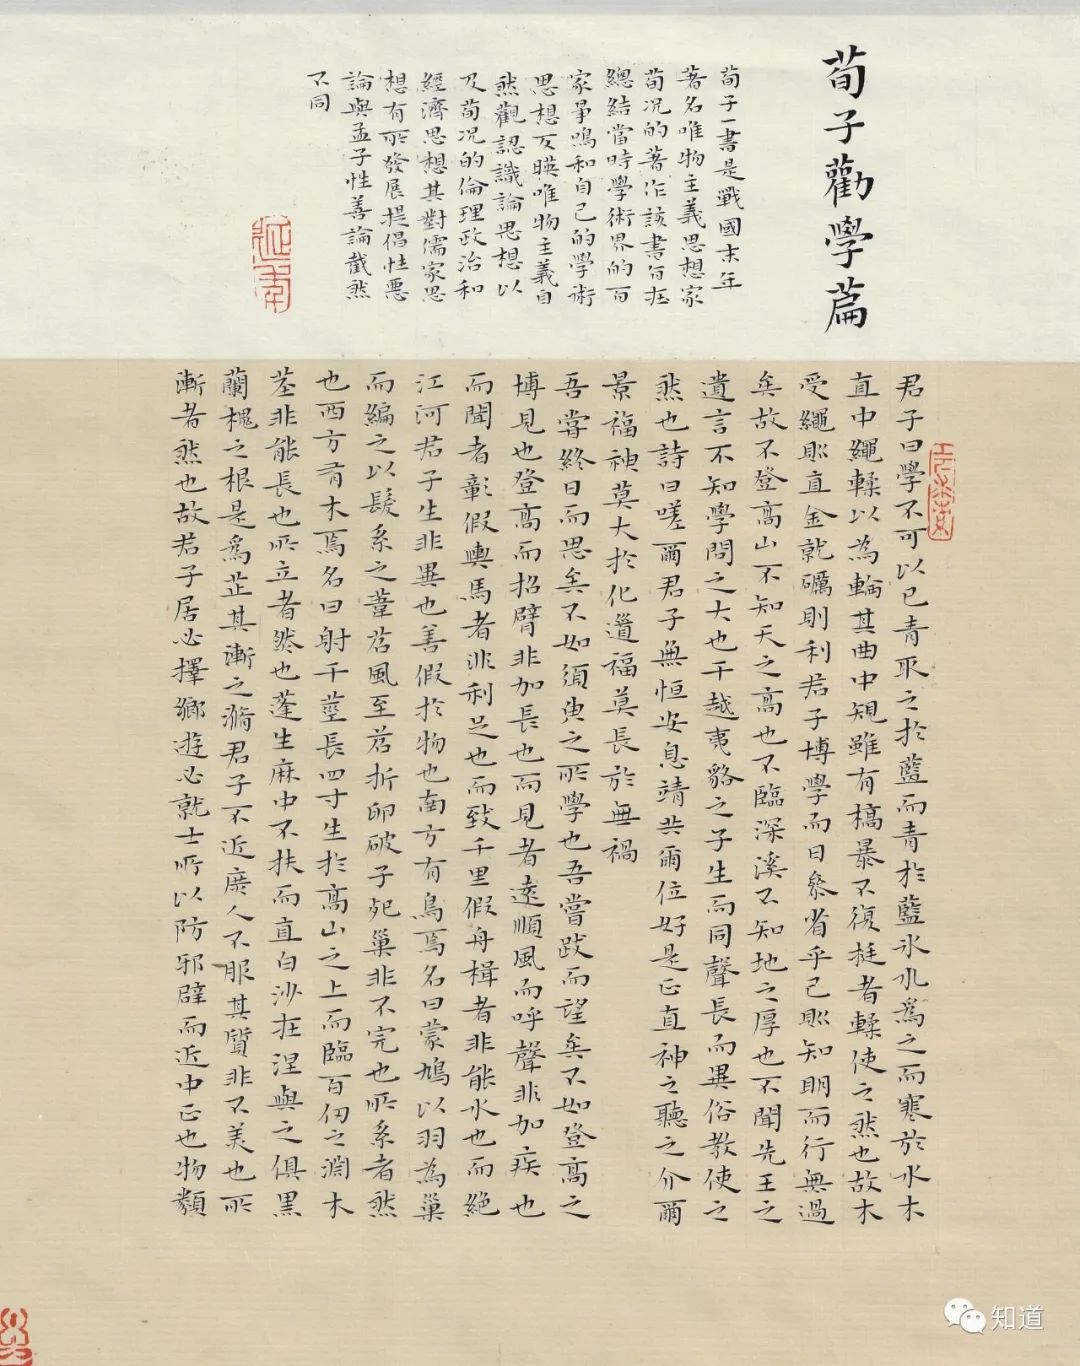 荀子勸學篇
荀子一書是戰國末年
著名唯物主義思想家
荀况的著作該書旨在
總結當時學術界的百
家爭鳴和自己的學術
思想反暎唯物主義自
然觀認識論思想以
及荀况的倫理政治和
經濟思想其對儒家思
想有所發展提倡性惡
論與孟子性善論截然
不同
君子曰學不可以已青取之於藍而青於藍冰水為之而寒於水木
直中繩輮以為輪其曲中規雖有槁暴不復挺者輮使之然也故木
受繩則直金就礪則利君子博學而日參省乎己則知明而行無過
矣故不登高山不知天之高也不臨深溪不知地之厚也不聞先王之
遺言不知學問之大也干越夷貉之子生而同聲長而異俗教使之
然也詩曰嗟爾君子無恒安息靖共爾位好是正直神之聽之介爾
景福神莫大於化道福莫長於無禍
吾嘗終日而思矣不如須臾之所學也吾嘗跂而望矣不如登高之
博見也登高而招臂非加長也而見者遠順風而呼聲非加疾也
而聞者彰假輿馬者非利足也而致千里假舟楫者非能水也而絕
江河君子生非異也善假於物也南方有鳥焉名曰蒙鳩以羽為巢
而編之以髮系之葦苕風至苕折卵破子死巢非不完也所系者然
也西方有木焉名曰射干莖長四寸生於高山之上而臨百仞之淵木
莖非能長也所立者然也蓬生麻中不扶而直白沙在涅與之俱黑
蘭槐之根是為芷其漸之滫君子不近庶人不服其質非不美也所
漸者然也故君子居必擇鄉遊必就士所以防邪辟而近中正也物類
知道